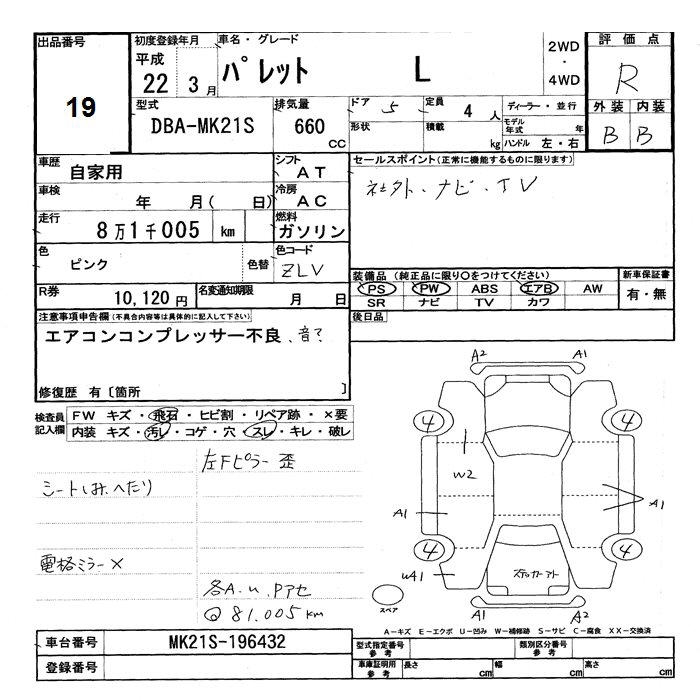 出品番号
19
初度登録年月
平成
22 3 月
車名・グレード
パレット L
2WD
・
4WD
評価点
R
外装 内装
B B
型式
DBA-MK21S
排気量
660
CC
ドア 5
定員 4 人
ディーラー・並行
形状
積載 kg
モデル
年式 年
ハンドル 左・右
車歴
自家用
シフト
AT
セールスポイント(正常に機能するものに限ります)
社外、ナビ、TV
車検
年 月( 日)
冷房
AC
走行
8万1千005 km
燃料
ガソリン
色
ピンク
色替
色コード
ZLV
装備品 (純正品に限り○をつけてください)
新車保証書
PS PW ABS エアB AW
有・無
SR ナビ TV カワ
R券
10,120 円
名変通知期限
月 日
後日品
注意事項申告欄(不具合内容等は具体的に記入して下さい)
エアコンコンプレッサー不良、音大
修復歴 有〔箇所 〕
検査員
記入欄
FW キズ・飛石・ヒビ割・リペア跡・×要
内装 キズ・汚レ・コゲ・穴・スレ・キレ・破レ
左Fピラー歪
シートしみ、へたり
電格ミラー×
各A.u.Pアセ
81.005km
A2 A1
4 4
W2
A1 A1
4 4
uA1
ステッカーアト
スペア
A1 A2
A-キズ E-エクボ U-凹み W-補修跡 S-サビ C-腐食 XX-交換済
車台番号
MK21S-196432
登録番号
型式指定番号
参考
類別区分番号
参考
車庫証明用
参考
長さ cm
幅 cm
高さ cm